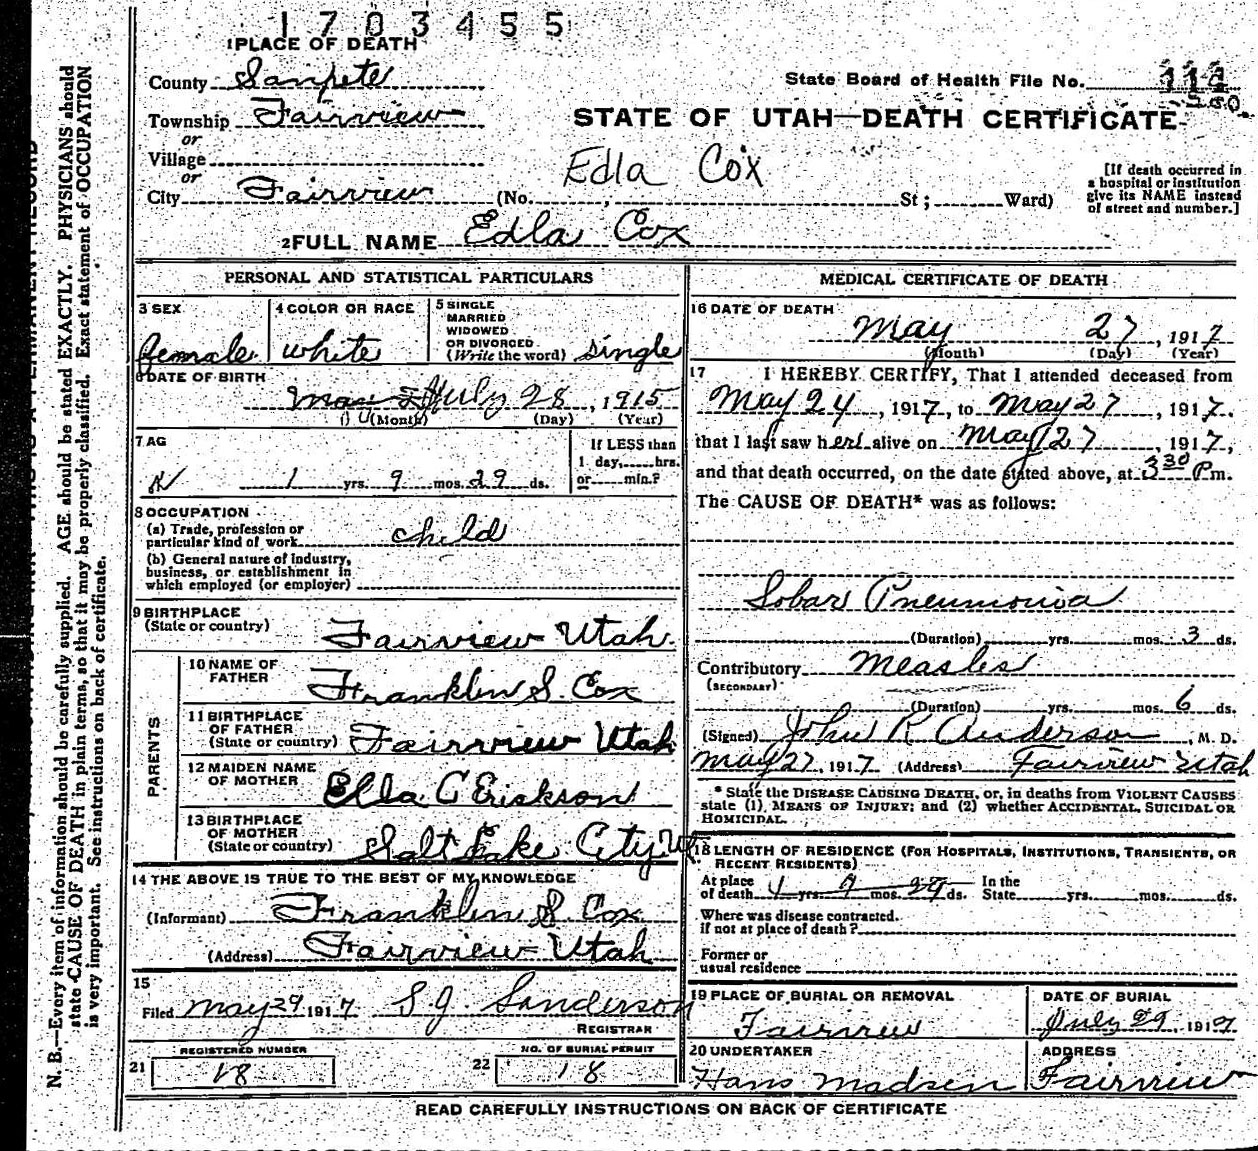 1703455
1 PLACE OF DEATH
County Sanpete
State Board of Health File No.
Township Fairview
STATE OF UTAH—DEATH CERTIFICATE
or
Village
or
Edla Cox
City Fairview (No. , St ; Ward)
[If death occurred in
a hospital or institution
give its NAME instead
of street and number.]
2 FULL NAME Edla Cox
PERSONAL AND STATISTICAL PARTICULARS
3 SEX
female
4 COLOR OR RACE
white
5 SINGLE
MARRIED
WIDOWED
OR DIVORCED
(Write the word) single
6 DATE OF BIRTH
July 28, 1915
(Month) (Day) (Year)
7 AG
1 yrs. 9 mos. 29 ds.
If LESS than
1 day, hrs.
or min.?
8 OCCUPATION
(a) Trade, profession or
particular kind of work child
(b) General nature of industry,
business, or establishment in
which employed (or employer)
9 BIRTHPLACE
(State or country) Fairview Utah.
PARENTS
10 NAME OF
FATHER Franklin S. Cox
11 BIRTHPLACE
OF FATHER
(State or country) Fairview Utah
12 MAIDEN NAME
OF MOTHER Ella C Erickson
13 BIRTHPLACE
OF MOTHER
(State or country) Salt Lake City Ut
14 THE ABOVE IS TRUE TO THE BEST OF MY KNOWLEDGE
(Informant) Franklin S. Cox
(Address) Fairview Utah
15
Filed May 29 1917 S.J. Sanderson
REGISTRAR
REGISTERED NUMBER
21 18
NO. OF BURIAL PERMIT
22 18
MEDICAL CERTIFICATE OF DEATH
16 DATE OF DEATH
May 27, 1917
(Month) (Day) (Year)
17 I HEREBY CERTIFY, That I attended deceased from
May 24, 1917, to May 27, 1917.
that I last saw her alive on May 27, 1917,
and that death occurred, on the date stated above, at 3 30 P m.
The CAUSE OF DEATH* was as follows:
Lobar Pneumonia
(Duration) yrs. mos. 3 ds.
Contributory Measles
(SECONDARY)
(Duration) yrs. mos. 6 ds.
(Signed) John R Anderson, M. D.
May 27, 1917 (Address) Fairview Utah
* State the DISEASE CAUSING DEATH, or, in deaths from VIOLENT CAUSES
state (1) MEANS OF INJURY; and (2) whether ACCIDENTAL, SUICIDAL OR
HOMICIDAL.
18 LENGTH OF RESIDENCE (FOR HOSPITALS, INSTITUTIONS, TRANSIENTS, OR
RECENT RESIDENTS)
At place
of death 1 yrs. 9 mos. 29 ds.
In the
State yrs. mos. ds.
Where was disease contracted.
if not at place of death?
Former or
usual residence
19 PLACE OF BURIAL OR REMOVAL
Fairview
DATE OF BURIAL
July 29 1917
20 UNDERTAKER
Hans Madsen
ADDRESS
Fairview
READ CAREFULLY INSTRUCTIONS ON BACK OF CERTIFICATE
N. B.—Every item of information should be carefully supplied. AGE should be stated EXACTLY. PHYSICIANS should
state CAUSE OF DEATH in plain terms, so that it may be properly classified. Exact statement of OCCUPATION
is very important. See instructions on back of certificate.